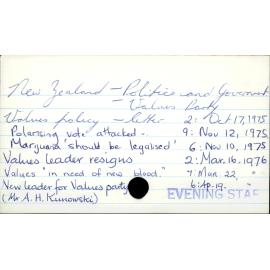 New Zealand - Politics and Government
- Values Party
Values policy - letter 2: Oct 17, 1975
Polarising vote attacked - 9: Nov 12, 1975
Marijuana 'should be legalised' 6: Nov 10, 1975
Values leader resigns 2: Mar. 16, 1976
Values "in need of new blood." 7: Mar. 22 "
New leader for Values party 6: Ap. 19. "
(Mr A. H. Kunowski)
EVENING STAR